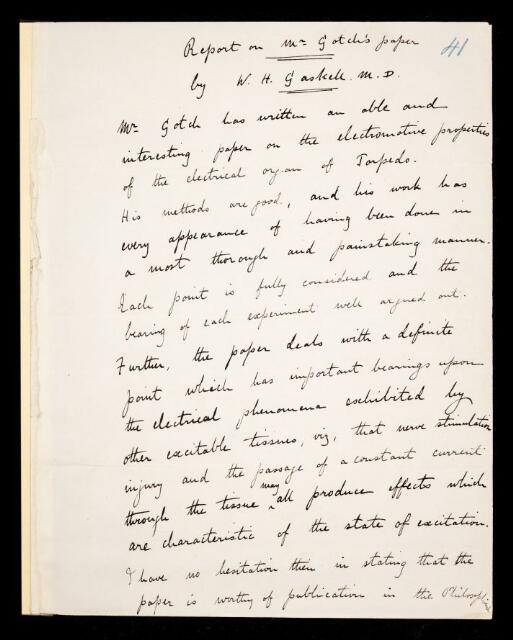 Report on Mr Gotch's paper
41
by W. H. Gaskell. M.D.
Mr Gotch has written an able and
interesting paper on the electromotive properties
of the electrical organ of Torpedo.
His methods are good, and his work has
every appearance of having been done in
a most thorough and painstaking manner.
Each point is fully considered and the
bearing of each experiment well argued out.
Further, the paper deals with a definite
point which has important bearings upon
the electrical phenomena exhibited by
other excitable tissues, viz, that nerve stimulation
injury and the passage of a constant current
may
through the tissue all produce effects which
are characteristic of the state of excitation.
I have no hesitation then in stating that the
paper is worthy of publication in the